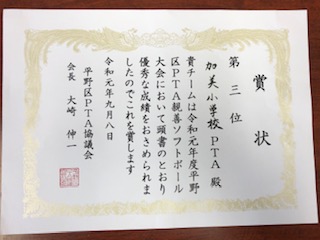 賞状
第三位
加美小学校PTA殿
貴チームは令和元年度平野
区PTA親善ソフトボール
大会において頭書のとおり
優秀な成績をおさめられま
したのでこれを賞します
令和元年九月八日
平野区PTA協議会
会長 大崎伸一